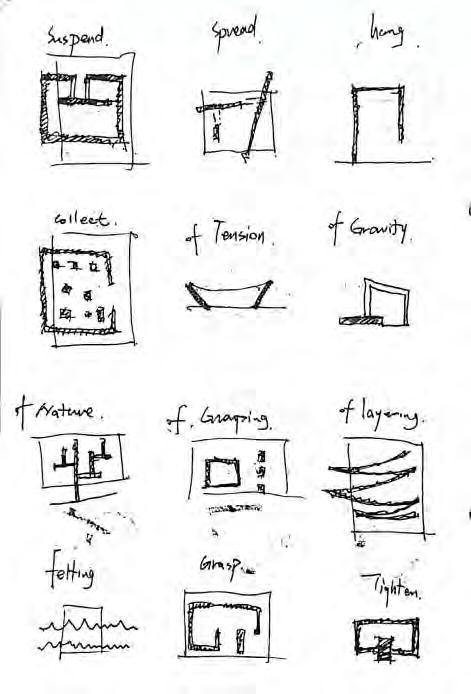 Suspend.
Spread.
hang
collect.
of Tension.
of Gravity.
of Nature.
of Grasping.
of layering.
felting
Grasp.
Tighten.